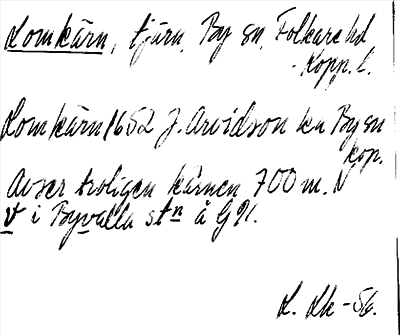 Lomkärn, tjärn, By sn, Folkare hd
Kopp. l.
Lomkärn 1652 J. Arvidson ka By sn
kop.
Avser troligen kärnen 700 m. N
V i Byvalla stn å G bl.
L. Lk -56.